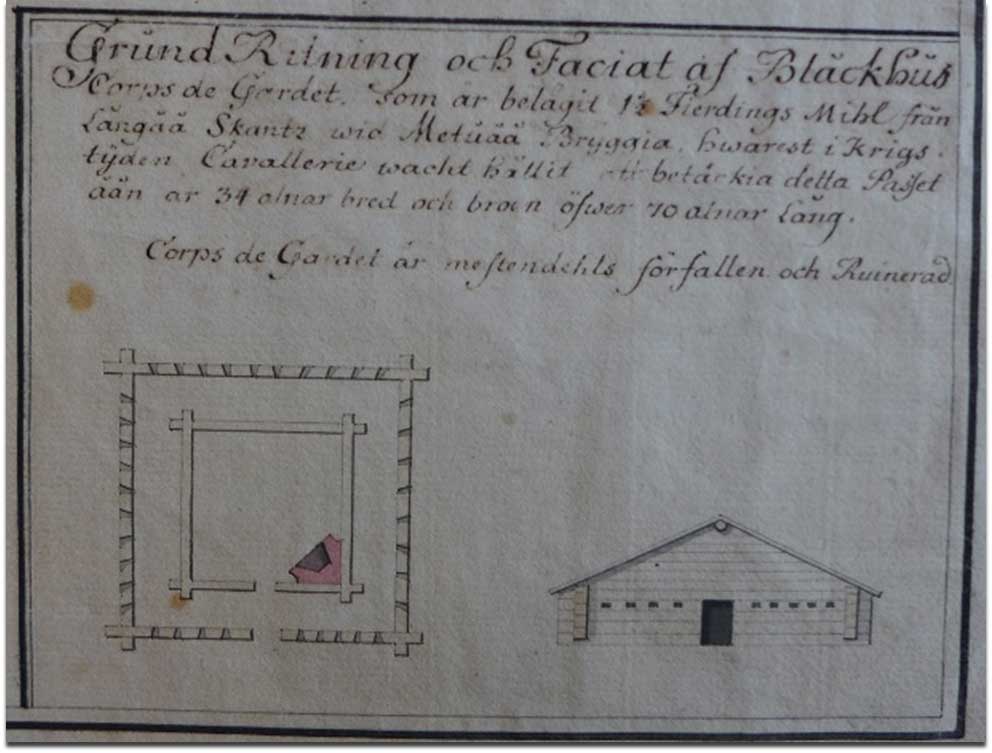 Grůnd Ritning och Faciat af Bläckhůs
Corps de Gardet. Som är belägit 1½ Fierdings Mihl från
Långåå Skantz wid Metååå Bryggia, hwarest i Krigs-
tÿden Cavallerie wacht hållit att betäckia detta Passet
åån är 34 alnar bred och bron öfwer 70 alnar Lång.
Corps de Gardet är mestendehls förfallen och Ruinerad